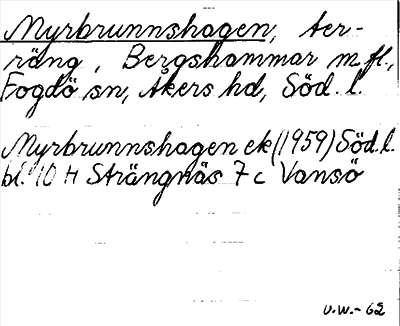 Myrbrunnshagen, ter-
räng, Bergshammar m.fl.,
Fogdö sn, Åkers hd, Söd. l.
Myrbrunnshagen ek (1959) Söd. l.
bl. 10 H Strängnäs 7 c Vansö
U.W. - 62